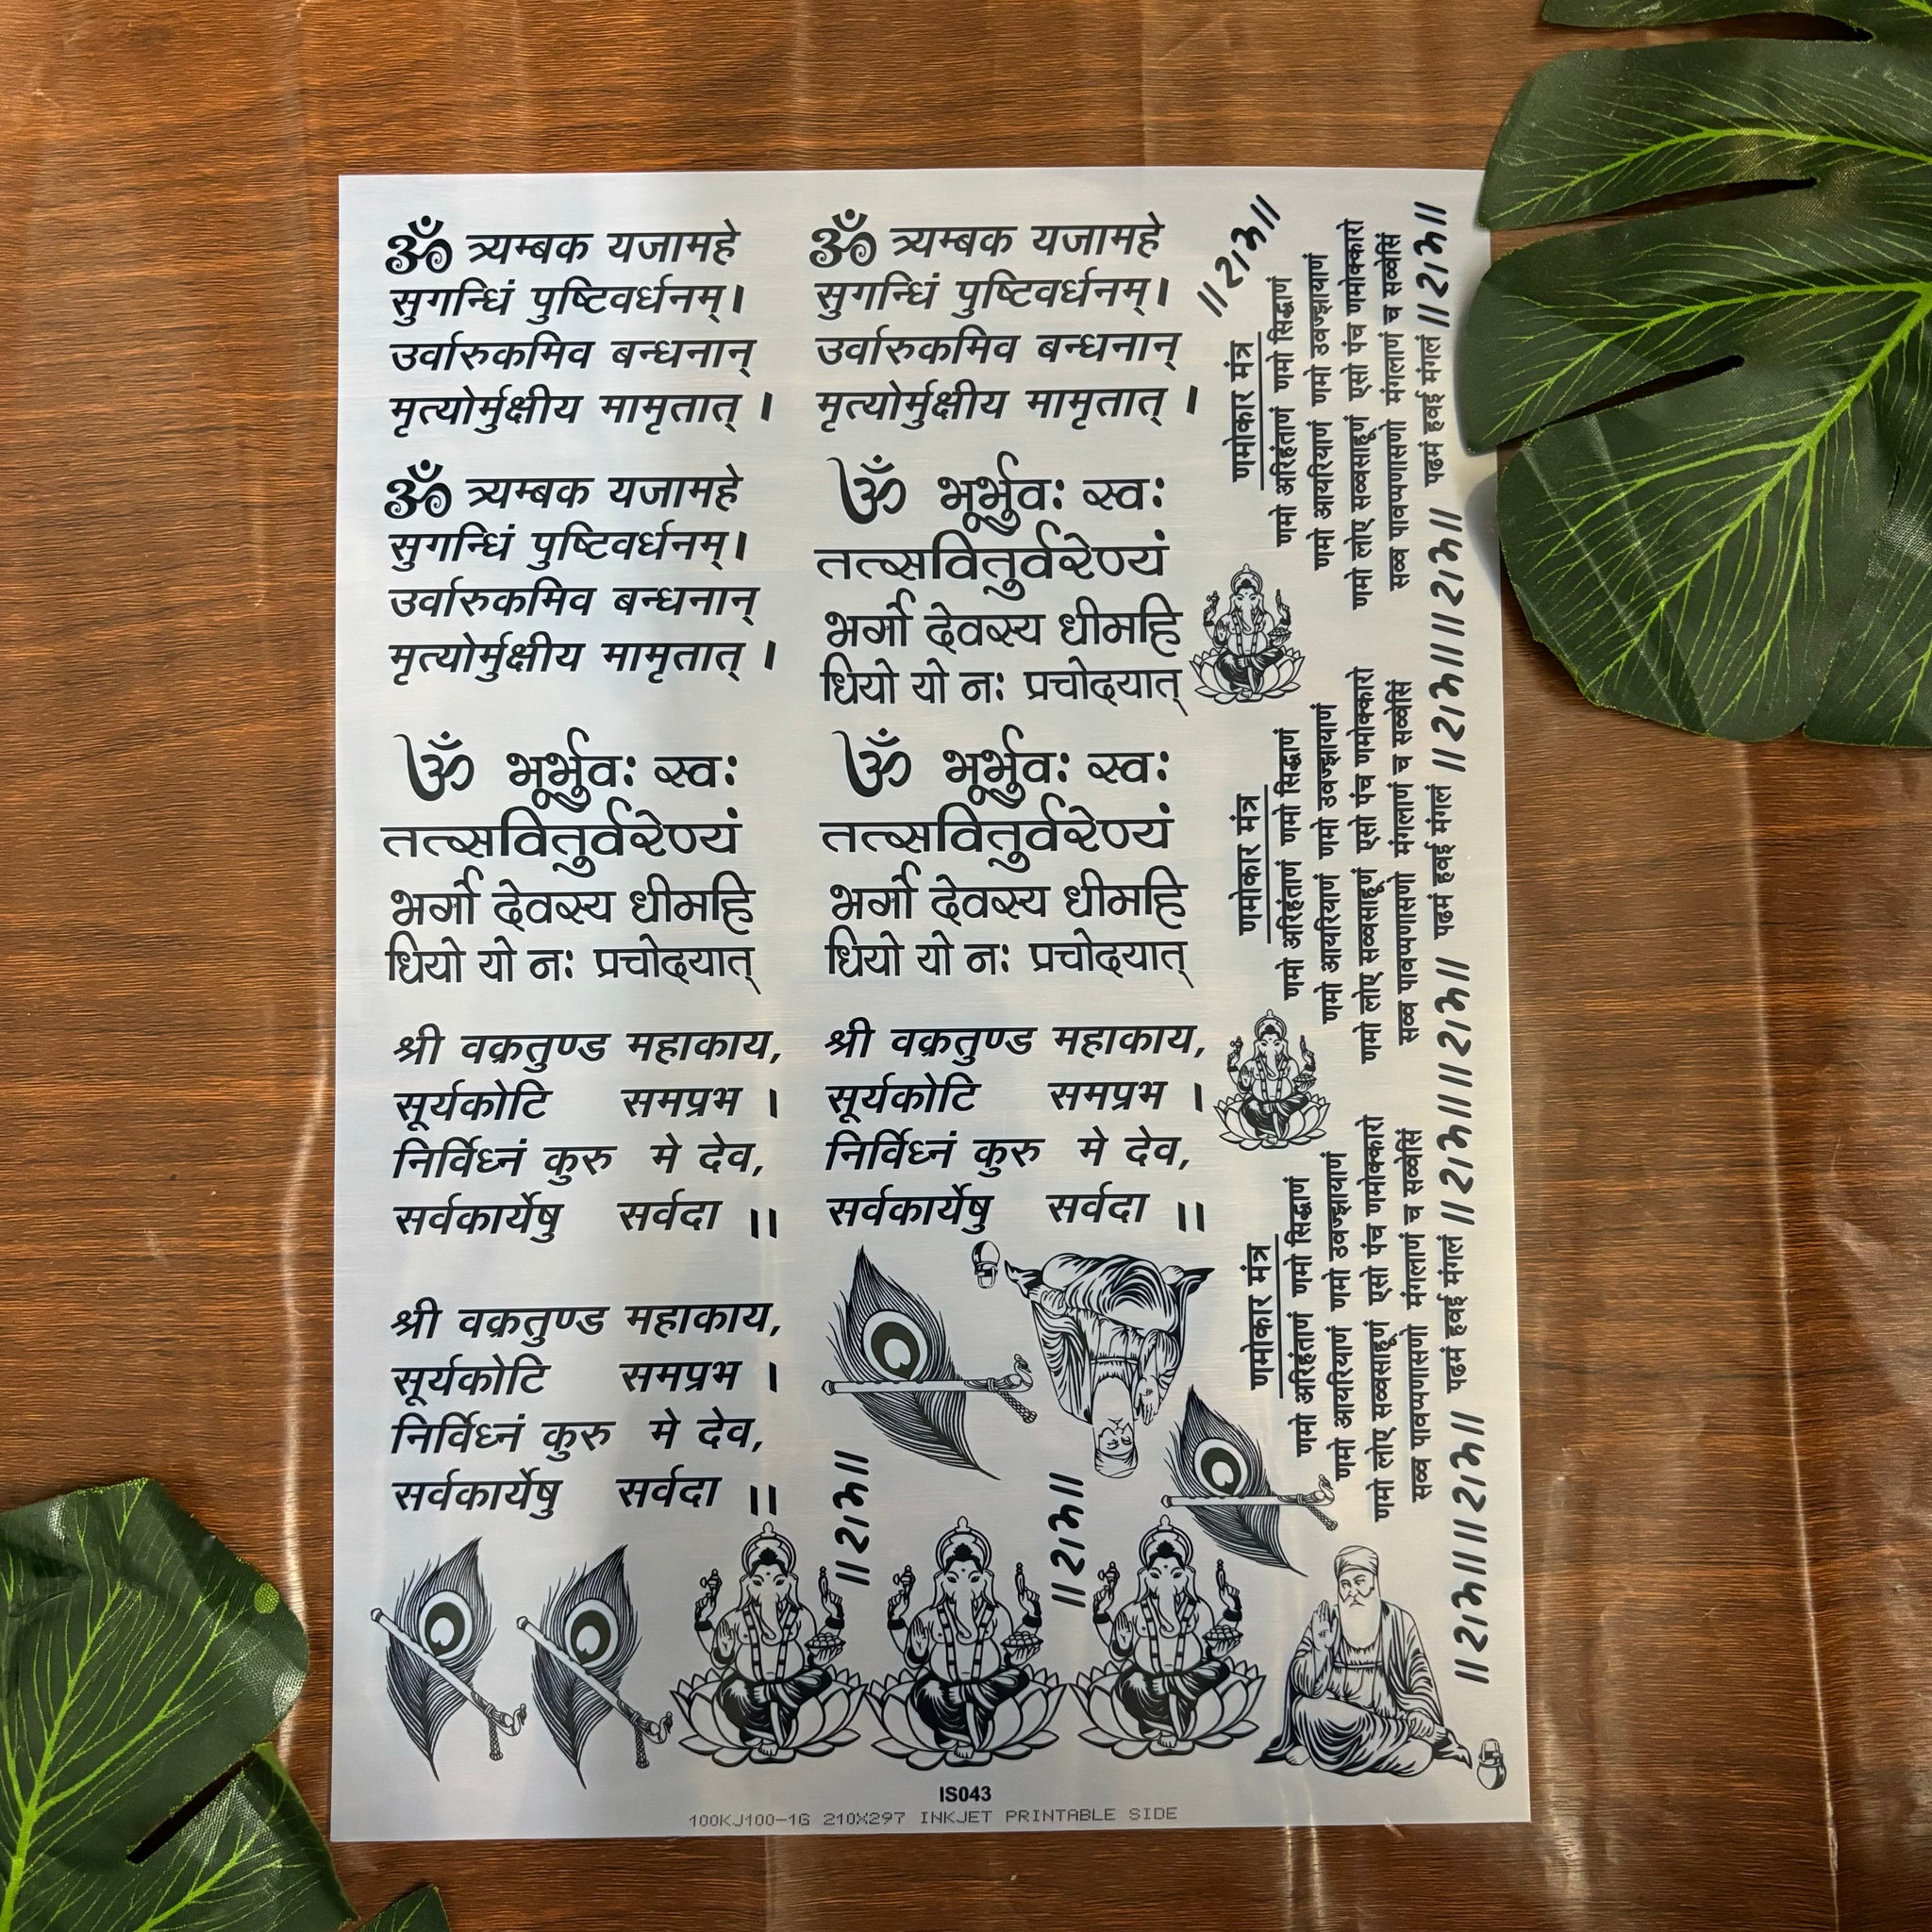 ॐ त्र्यम्बक यजामहे
सुगन्धिं पुष्टिवर्धनम्।
उर्वारुकमिव बन्धनान्
मृत्योर्मुक्षीय मामृतात् ।
ॐ त्र्यम्बक यजामहे
सुगन्धिं पुष्टिवर्धनम्।
उर्वारुकमिव बन्धनान्
मृत्योर्मुक्षीय मामृतात् ।
ॐ भूर्भुवः स्वः
तत्सवितुर्वरेण्यं
भर्गो देवस्य धीमहि
धियो यो नः प्रचोदयात्
श्री वक्रतुण्ड महाकाय,
सूर्यकोटि समप्रभ ।
निर्विध्नं कुरु मे देव,
सर्वकार्येषु सर्वदा ॥
श्री वक्रतुण्ड महाकाय,
सूर्यकोटि समप्रभ ।
निर्विध्नं कुरु मे देव,
सर्वकार्येषु सर्वदा ॥
ॐ त्र्यम्बक यजामहे
सुगन्धिं पुष्टिवर्धनम्।
उर्वारुकमिव बन्धनान्
मृत्योर्मुक्षीय मामृतात् ।
ॐ भूर्भुवः स्वः
तत्सवितुर्वरेण्यं
भर्गो देवस्य धीमहि
धियो यो नः प्रचोदयात्
ॐ भूर्भुवः स्वः
तत्सवितुर्वरेण्यं
भर्गो देवस्य धीमहि
धियो यो नः प्रचोदयात्
श्री वक्रतुण्ड महाकाय,
सूर्यकोटि समप्रभ ।
निर्विध्नं कुरु मे देव,
सर्वकार्येषु सर्वदा ॥
॥राम॥
॥राम॥
॥राम॥
णमोकार मंत्र
णमो अरिहंताणं णमो सिद्धाणं
णमो आयरियाणं णमो उवज्झायाणं
णमो लोए सव्वसाहूणं एसो पंच णमोक्कारो
सव्व पावप्पणासणो मंगलाणं च सव्वेसिं
पढमं हवई मंगलं
॥राम॥
॥राम॥
॥राम॥
णमोकार मंत्र
णमो अरिहंताणं णमो सिद्धाणं
णमो आयरियाणं णमो उवज्झायाणं
णमो लोए सव्वसाहूणं एसो पंच णमोक्कारो
सव्व पावप्पणासणो मंगलाणं च सव्वेसिं
पढमं हवई मंगलं
॥राम॥
॥राम॥
णमोकार मंत्र
णमो अरिहंताणं णमो सिद्धाणं
णमो आयरियाणं णमो उवज्झायाणं
णमो लोए सव्वसाहूणं एसो पंच णमोक्कारो
सव्व पावप्पणासणो मंगलाणं च सव्वेसिं
पढमं हवई मंगलं
॥राम॥
॥राम॥
॥राम॥
IS043
100KJ100-1G 210X297 INKJET PRINTABLE SIDE